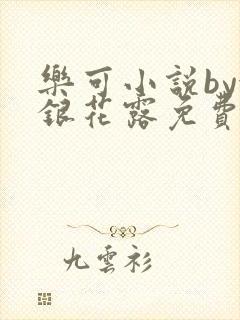 樂可小說by
銀花露免費
九雲衫